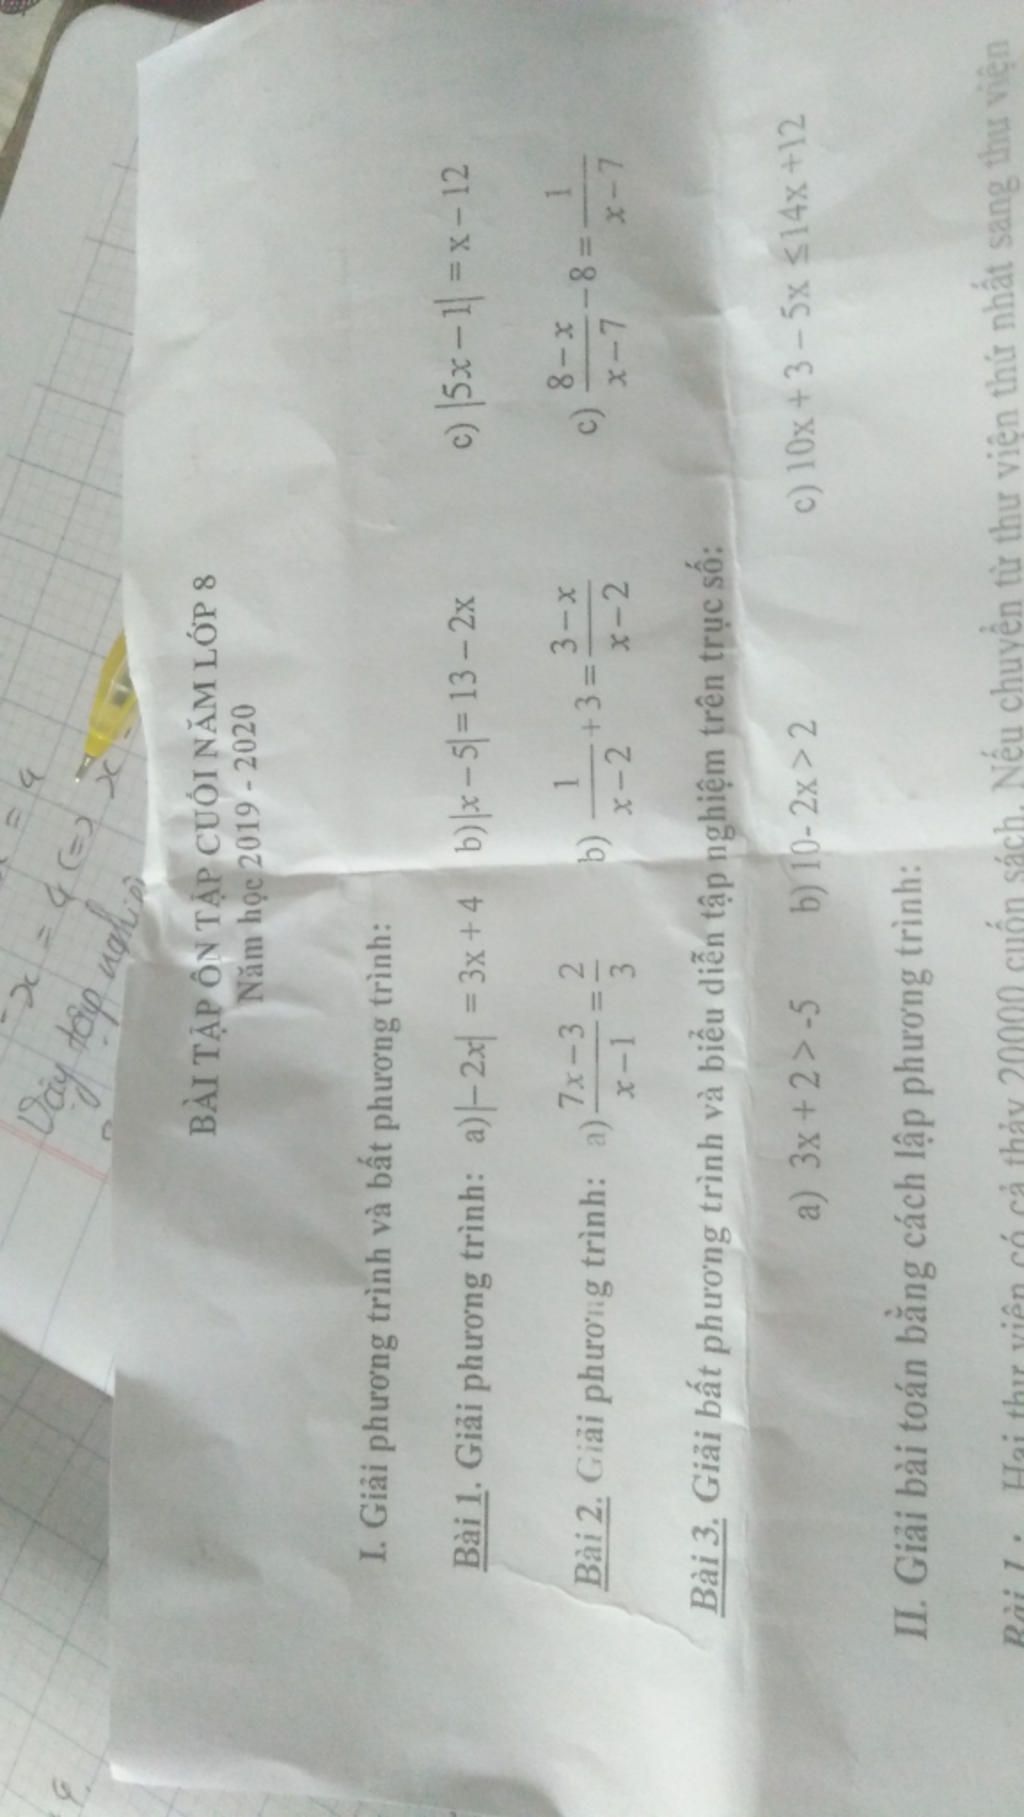 BÀI TẬP ÔN TẬP CUỐI NĂM LỚP 8
Năm học 2019 - 2020
I. Giải phương trình và bất phương trình:
Bài 1. Giải phương trình: a)|−2x| = 3x + 4 b)|x − 5| = 13 − 2x c) |5x − 1| = x − 12
Bài 2. Giải phương trình: a) (7x − 3)/(x − 1) = 2/3 b) 1/(x − 2) + 3 = (3 − x)/(x − 2) c) (8 − x)/(x − 7) − 8 = 1/(x − 7)
Bài 3. Giải bất phương trình và biểu diễn tập nghiệm trên trục số:
a) 3x + 2 > -5 b) 10- 2x > 2 c) 10x + 3 − 5x ≤ 14x + 12
II. Giải bài toán bằng cách lập phương trình:
Bài 1: Hai thư viện có cả thảy 20000 cuốn sách. Nếu chuyển từ thư viện thứ nhất sang thư viện
-x = 4 (=) x
Vậy tập nghiệm